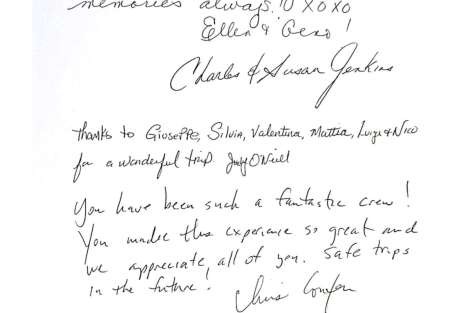 memories always!! XOXO
Ellen & Geno!
Charles & Susan Jenkins
Thanks to Gioseppe, Silvia, Valentina, Mattia, Luigi & Nico
for a wonderful trip Judy O'Neill
You have been such a fantastic crew!
You made this experience so great and
we appreciate all of you. Safe trips
in the future! Chris